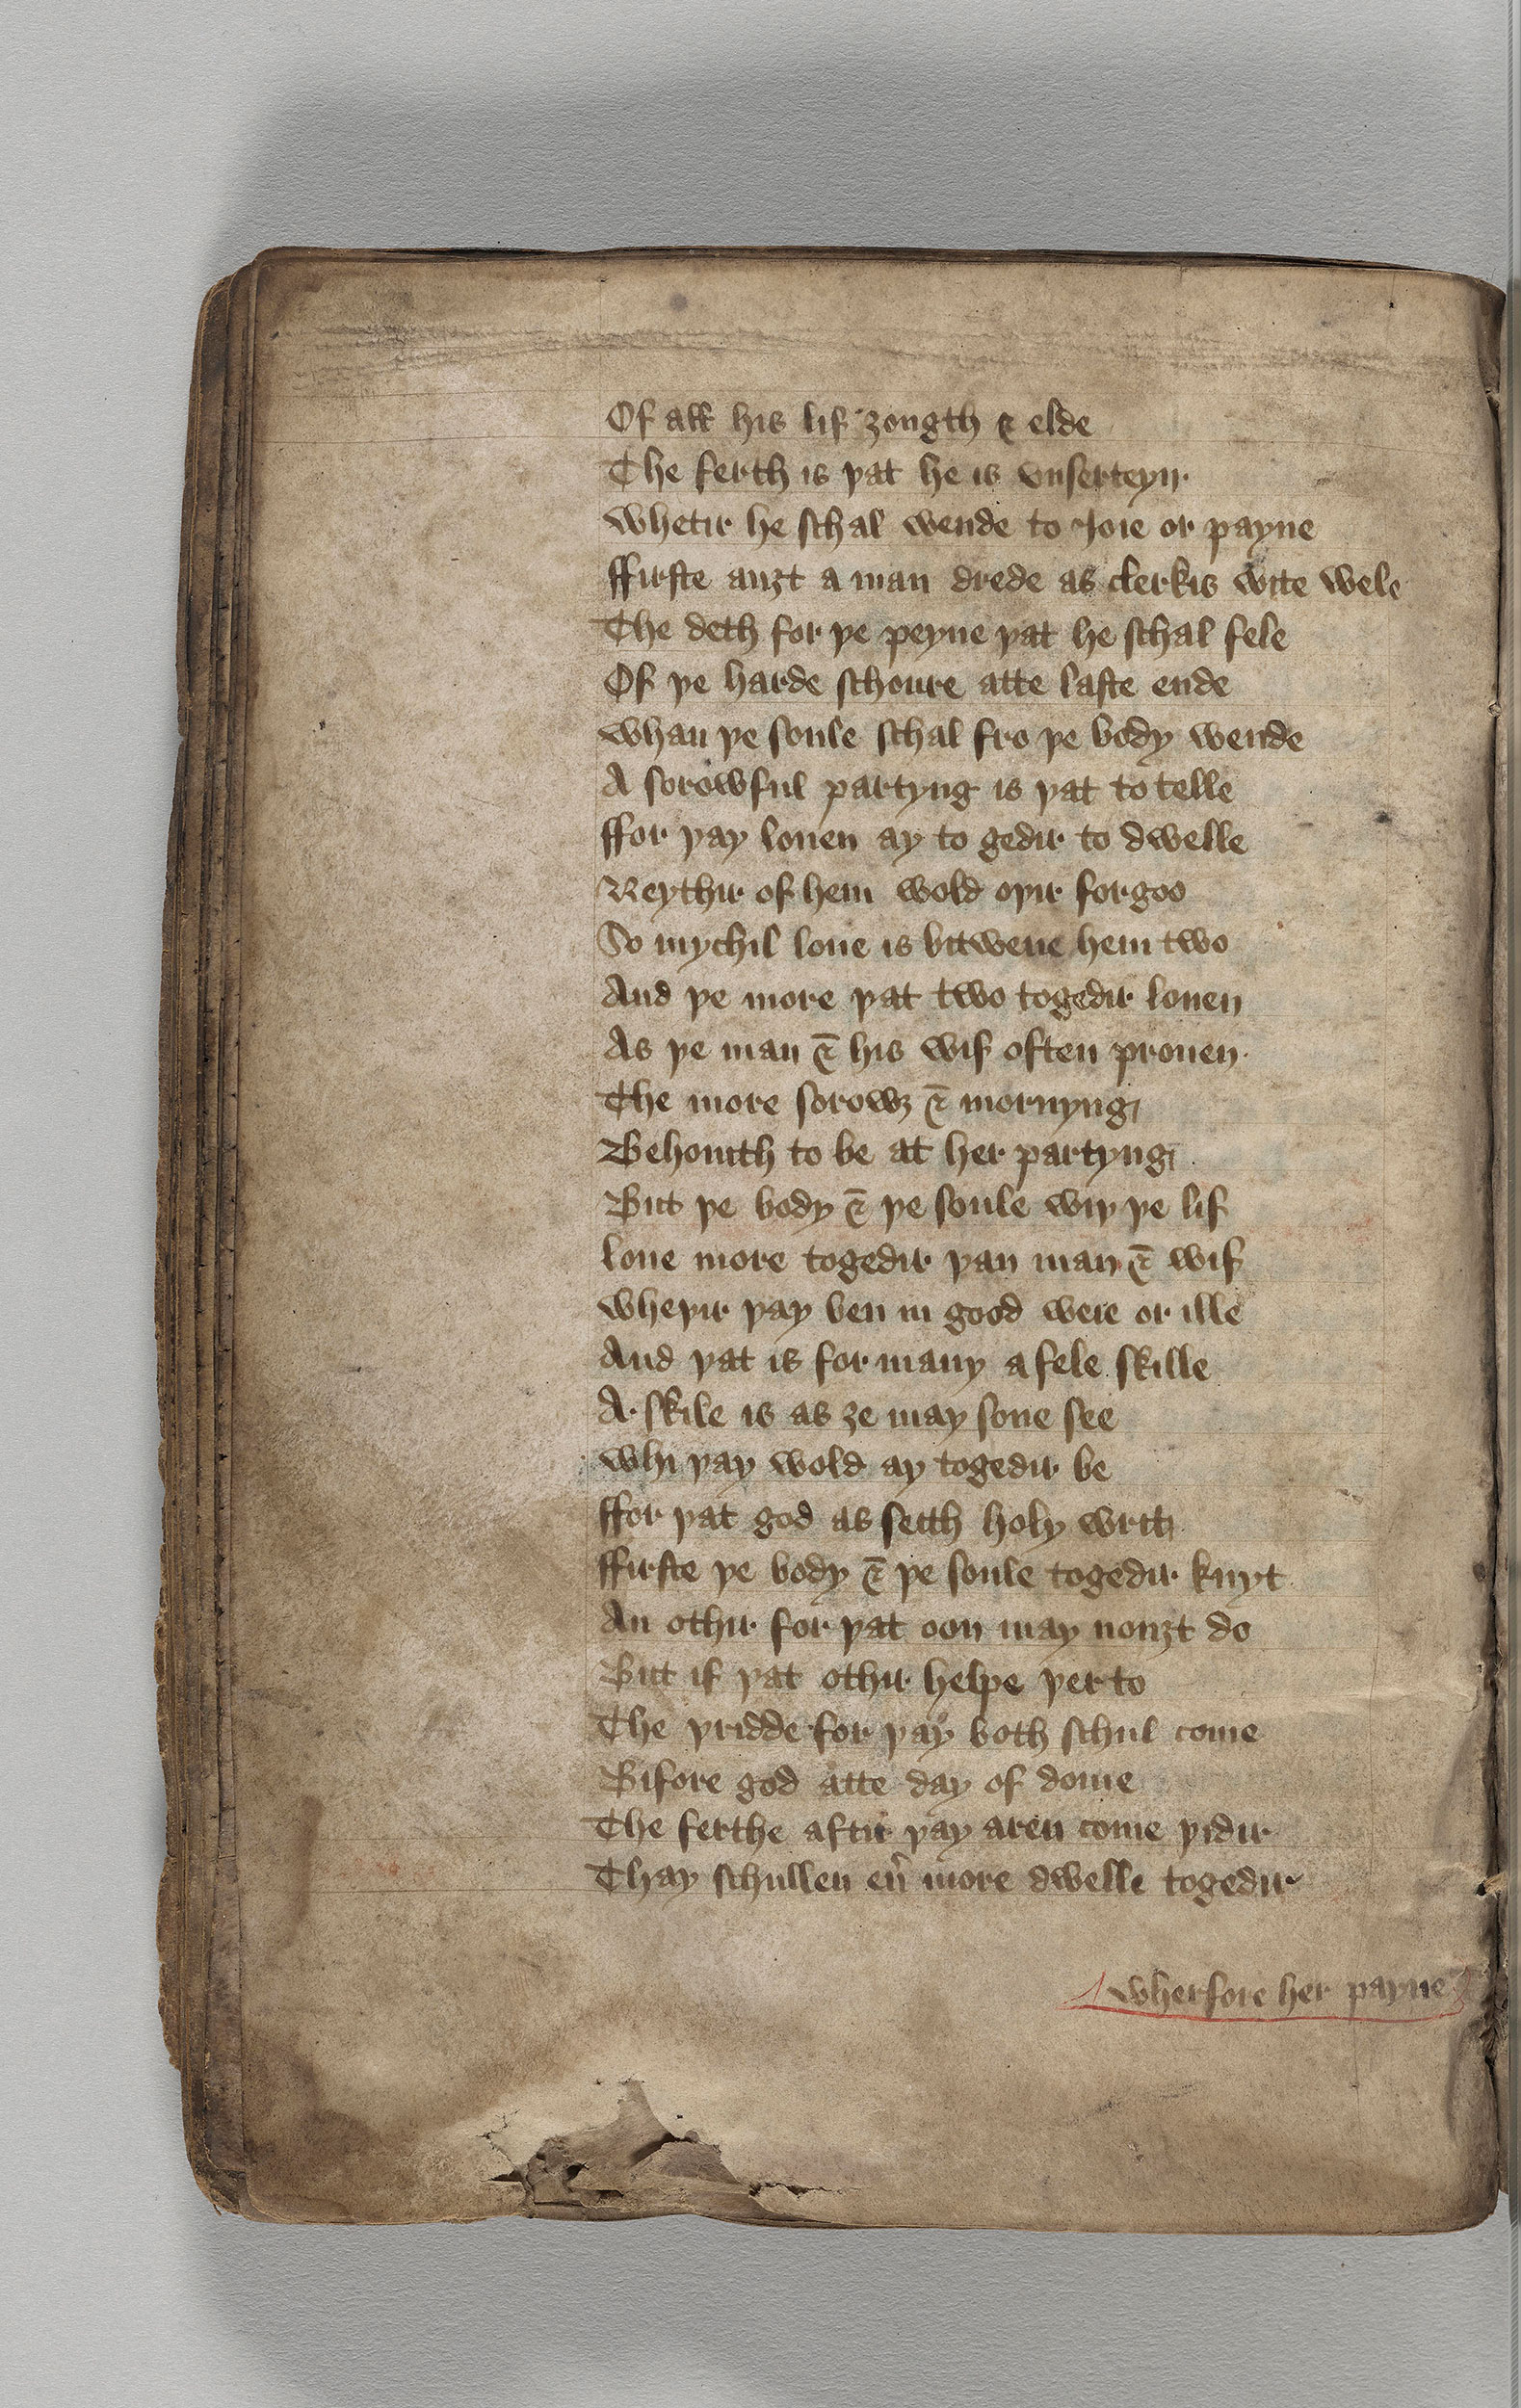 Of all his lif ȝougth & elde
The ferth is þat he is vnserteyn
Whetir he schal wende to Joie or payne
ffirste auȝt a man drede as clerkis wite wele
The deth for þe peyne þat he schal fele
Of þe harde schoure atte laste ende
Whan þe soule schal fro þe body wende
A sorowful partyng is þat to telle
ffor þay louen ay to gedir to dwelle
Neythir of hem wold oþir forgoo
So mychil loue is bitwene hem two
And þe more þat two togedir louen
As þe man & his wif often prouen
The more sorowȝ & mornyng
Behouith to be at her partyng
But þe body & þe soule wiþ þe lif
loue more togedir þan man & wif
Wheþir þay ben in good were or ille
And þat is for many a fele skille
A skile is as ȝe may sone see
Whi þay wold ay togedir be
ffor þat god as seith holy writ
ffirste þe body & þe soule togedir knyt
An othir for þat oon may nouȝt do
But if þat othir helpe þer to
The þridde for þay both schul come
Bifore god atte day of dome
The ferthe aftir þay aren come þidir
Thay schullen eu̾ more dwelle togedir
Wherfore her payne